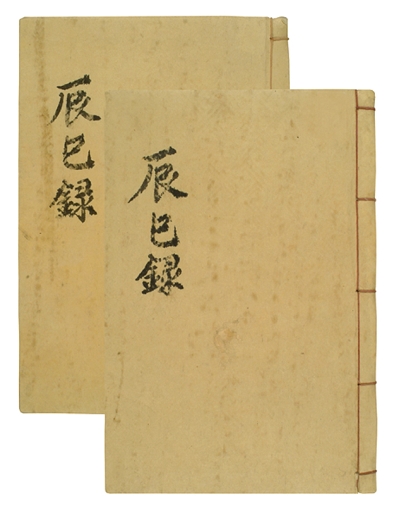 辰巳録
辰巳録